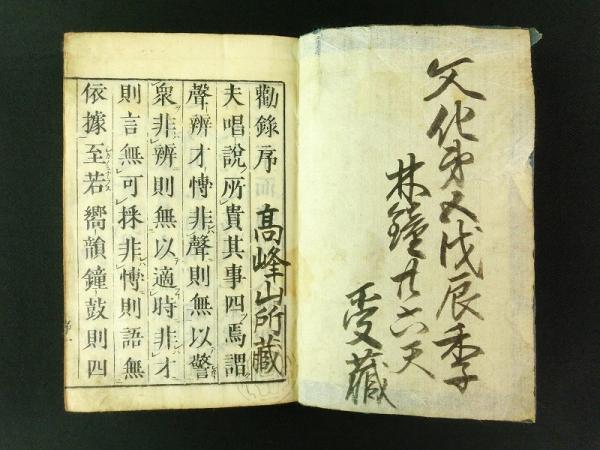 文化第五戊辰季
林鐘廿六天
受藏
勸錄序
高峰山所藏
夫唱說所貴其事四焉謂
聲辨才博非聲則無以警
衆非辨則無以適時非才
則言無可採非博則語無
依據至若嚮韻鐘鼓則四
序一